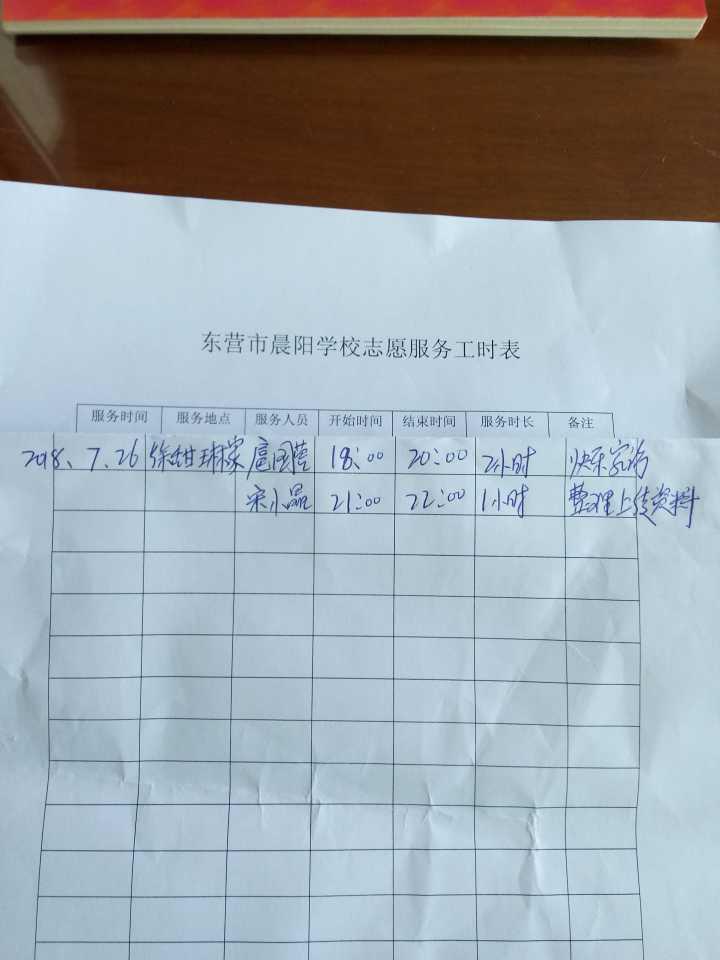 东营市晨阳学校志愿服务工时表
服务时间 服务地点 服务人员 开始时间 结束时间 服务时长 备注
2018、7、26 徐甜琳家 扈国莲 18:00 20:00 2小时 快乐家访
宋小晶 21:00 22:00 1小时 整理上传资料